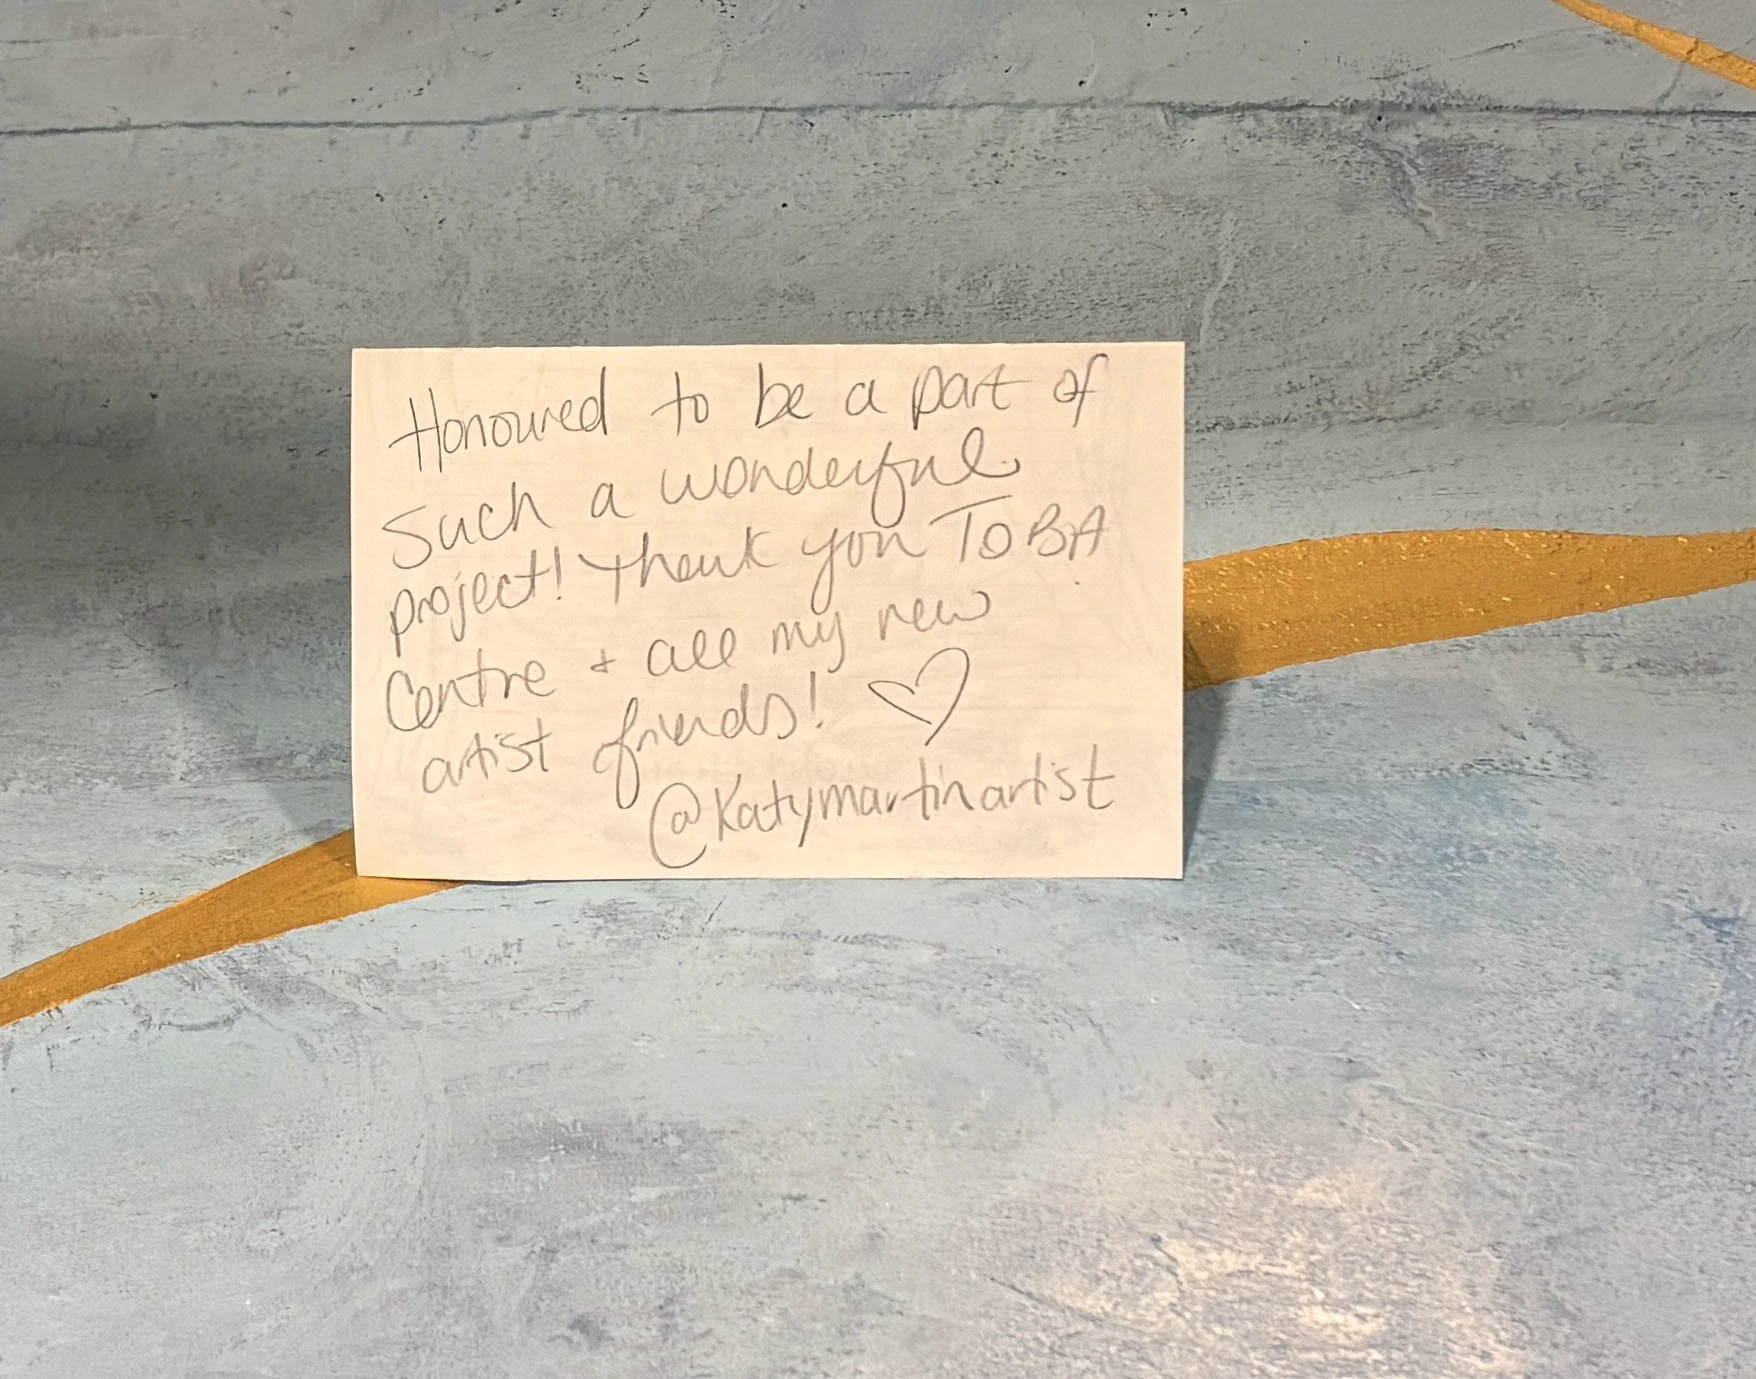 Honoured to be a part of
Such a wonderful
project! Thank you TOBA
Centre + all my new
artist friends! ♡
@Katymartinartist